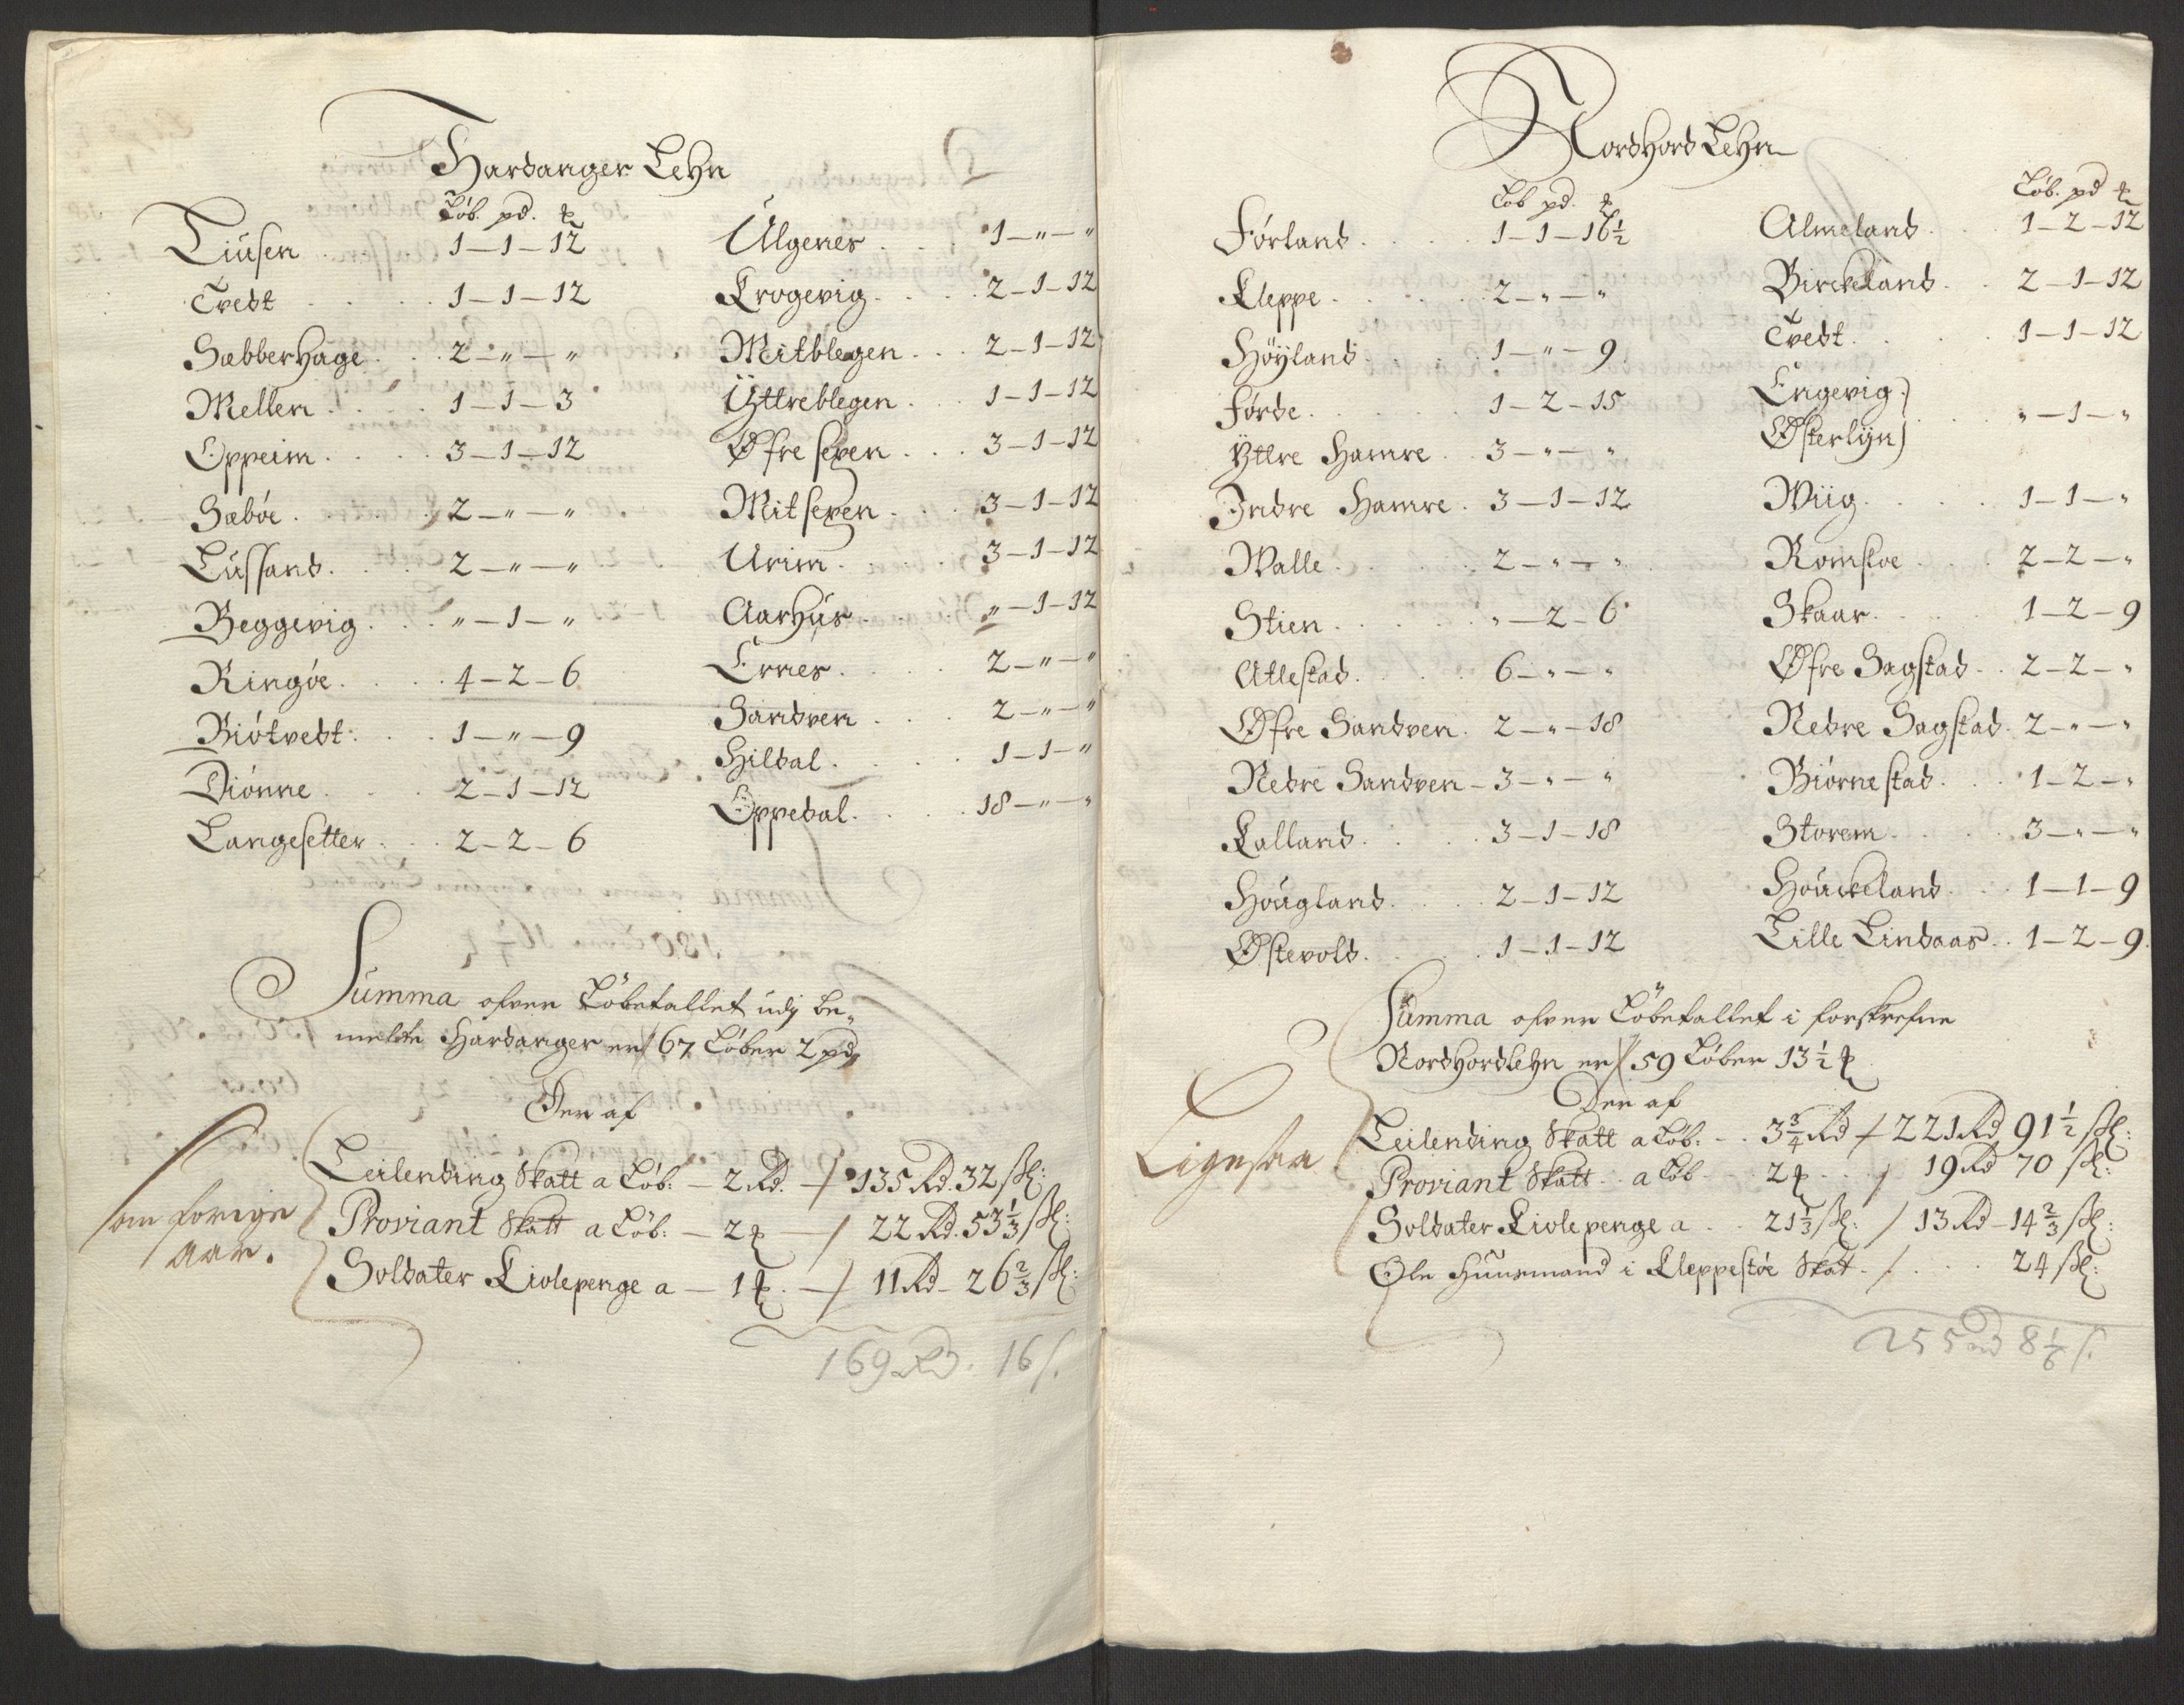 Hardanger Lehn
Löb. pd. ℔
Tiusen . 1 — 1 — 12
Tvedt . . . . . 1 — 1 — 12
Sæbberhage . . 2 — " — "
Mellen . . . . 1 — 1 — 3
Oppeim . . . . 3 — 1 — 12
Sæbøe . . . . . 2 — " — "
Lussand . . . . 2 — " — "
Beggevig . . . " — 1 — "
Ringøe . . . . 4 — 2 — 6
Biötvedt . . . 1 — " — 9
Diönne . . . . 2 — 1 — 12
Langesetter . . 2 — 2 — 6
Ulgenes . . . . 1 — " — "
Krogevig . . . . 2 — 1 — 12
Mitblegen . . . 2 — 1 — 12
Yttreblegen . . . 1 — 1 — 12
Øfre sexen . . . 3 — 1 — 12
Mitsexen . . . 3 — 1 — 12
Urim . . . . 3 — 1 — 12
Aarhus . . . . " — 1 — 12
Ernes . . . . 2 — " — "
Sandven . . . . 2 — " — "
Hildal . . . . . 1 — 1 — "
Oppedal . . . . 18 — " — "
Summa ofver Löbetallet udj be-
melte Hardanger er / 67 Löber 2 pd
Der af
som forige
aar.
Leilending Skatt a Löb: — 2 Rd. — / 135 Rd. 32 ſß:
Proviant Skatt a Löb: — 2 ℔ — / 22 Rd. 53 1/3 ſß:
Soldater Kiolepenge a — 1 ℔ . — / 11 Rd — 26 2/3 ſß:
169 Rd. 16 ſ.
NordHord Lehn
Löb pd. ℔
Förland . . . . 1 — 1 — 16 1/2
Kleppe . . . . . 2 — " — "
Höyland . . . . 1 — " — 9
Förde . . . . . 1 — 2 — 15
Yttre Hamre . . 3 — " — "
Indre Hamre . 3 — 1 — 12
Walle . . . . . 2 — " — "
Stien . . . . . " — 2 — 6
Atlestad . . . . 6 — " — "
Øfre Sandven . 2 — " — 18
Nedre Sandven — 3 — " — "
Kalland . . . . 3 — 1 — 18
Hougland . . . . 2 — 1 — 12
Østevold . . . . 1 — 1 — 12
Löb. pd ℔
Almeland . . . 1 — 2 — 12
Birckeland . . 2 — 1 — 12
Tvedt . . . . 1 — 1 — 12
Engevig )
Østerlijn ) . . . " — 1 — "
Wiig . . . . . 1 — 1 — "
Romsloe . . . . 2 — 2 — "
Skaar . . . . . 1 — 2 — 9
Øfre Sagstad . . 2 — 2 — "
Nedre Sagstad . 2 — " — "
Biörnestad . . . 1 — 2 — "
Storem . . . . 3 — " — "
Houckeland . . . 1 — 1 — 9
Lille Lindaas . . 1 — 2 — 9.
Summa ofver Löbetallet i forskrefne
NordHordlehn er / 59 Löber 13 1/2 ℔
Der af
Ligesaa
Leilending Skatt a Löb: — . 3 3/4 Rd / 221 Rd 91 1/2 ſß:
Proviant Skatt . . a Löb — . 2 ℔ . . . / 19 Rd 70 ſß:
Soldater Kiolepenge a . . 21 1/3 ſß: / 13 Rd — 14 2/3 ſß:
Ole Huusmand i Kleppestöe Skat . / . . . . 24 ſß:
255 rd 8 1/6 ſ.